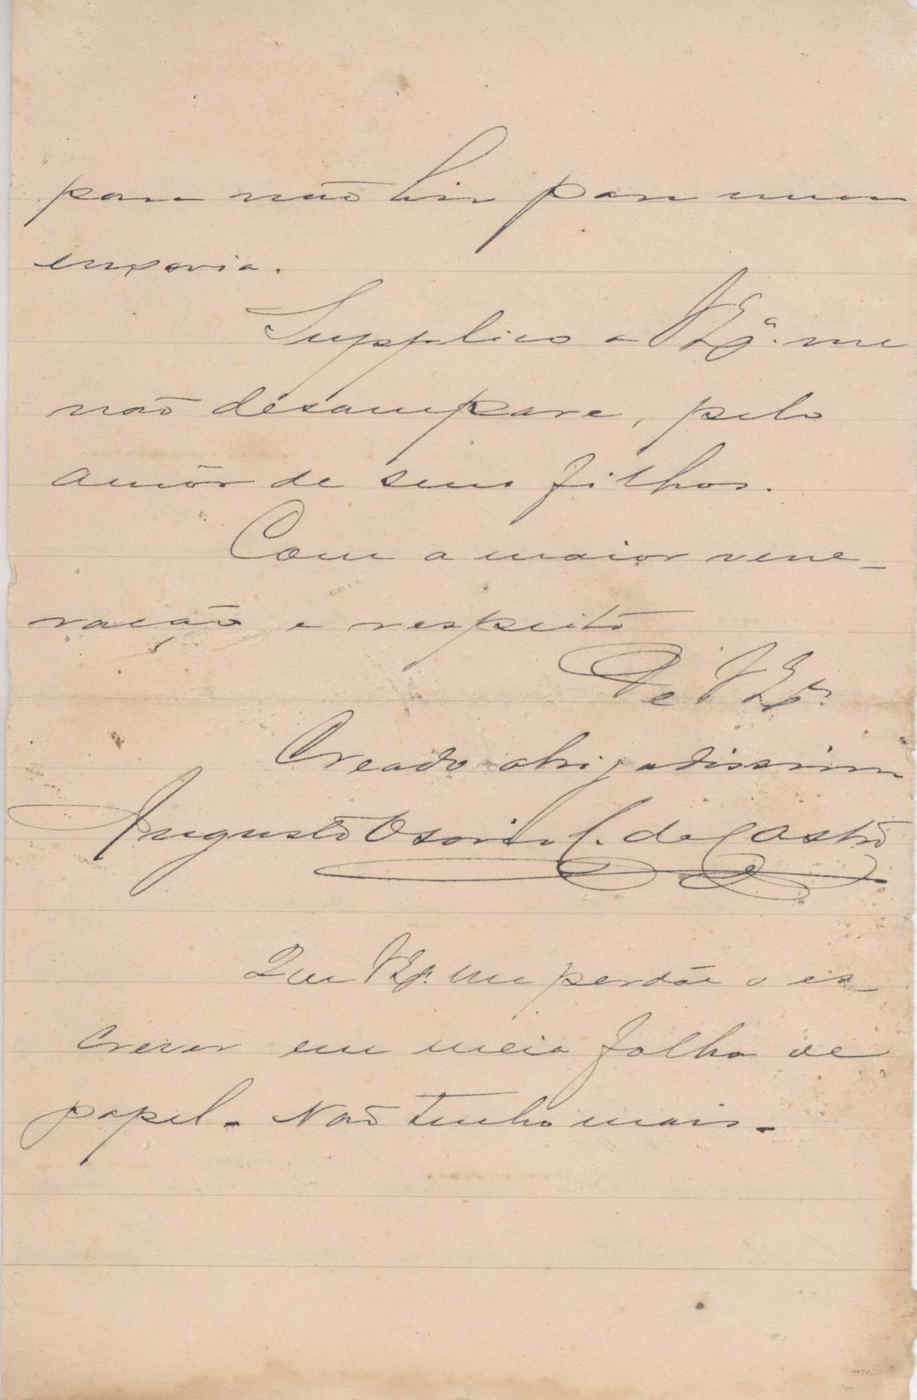 para não hir para uma
enxovia.
Supplico a V Exª. me
não desampare, pelo
amôr de seus filhos.
Com a maior vene-
ração e respeito
De V Exª.
Creado obrigadissimo
Augusto Osorio C. de Castro
Que V Exª. me perdôe o es-
crever em meia folha de
papel. Não tenho mais.